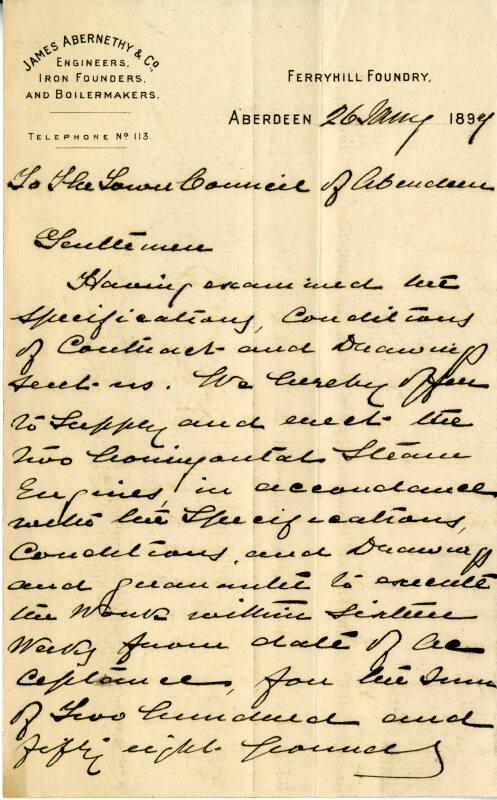 JAMES ABERNETHY & Co.
ENGINEERS,
IRON FOUNDERS,
AND BOILERMAKERS.
TELEPHONE No 113.
FERRYHILL FOUNDRY,
ABERDEEN 26 Jany 1894
To The Town Council of Aberdeen
Gentlemen
Having examined the
Specifications, Conditions
of Contract and Drawings
sent us. We hereby offer
to Supply and erect the
two horizontal Steam
Engines, in accordance
with the Specifications,
Conditions, and Drawings
and guarantee to execute
the Work within Sixteen
Weeks from date of Ac
ceptance, for the Sum
of Two hundred and
fifty eight pounds